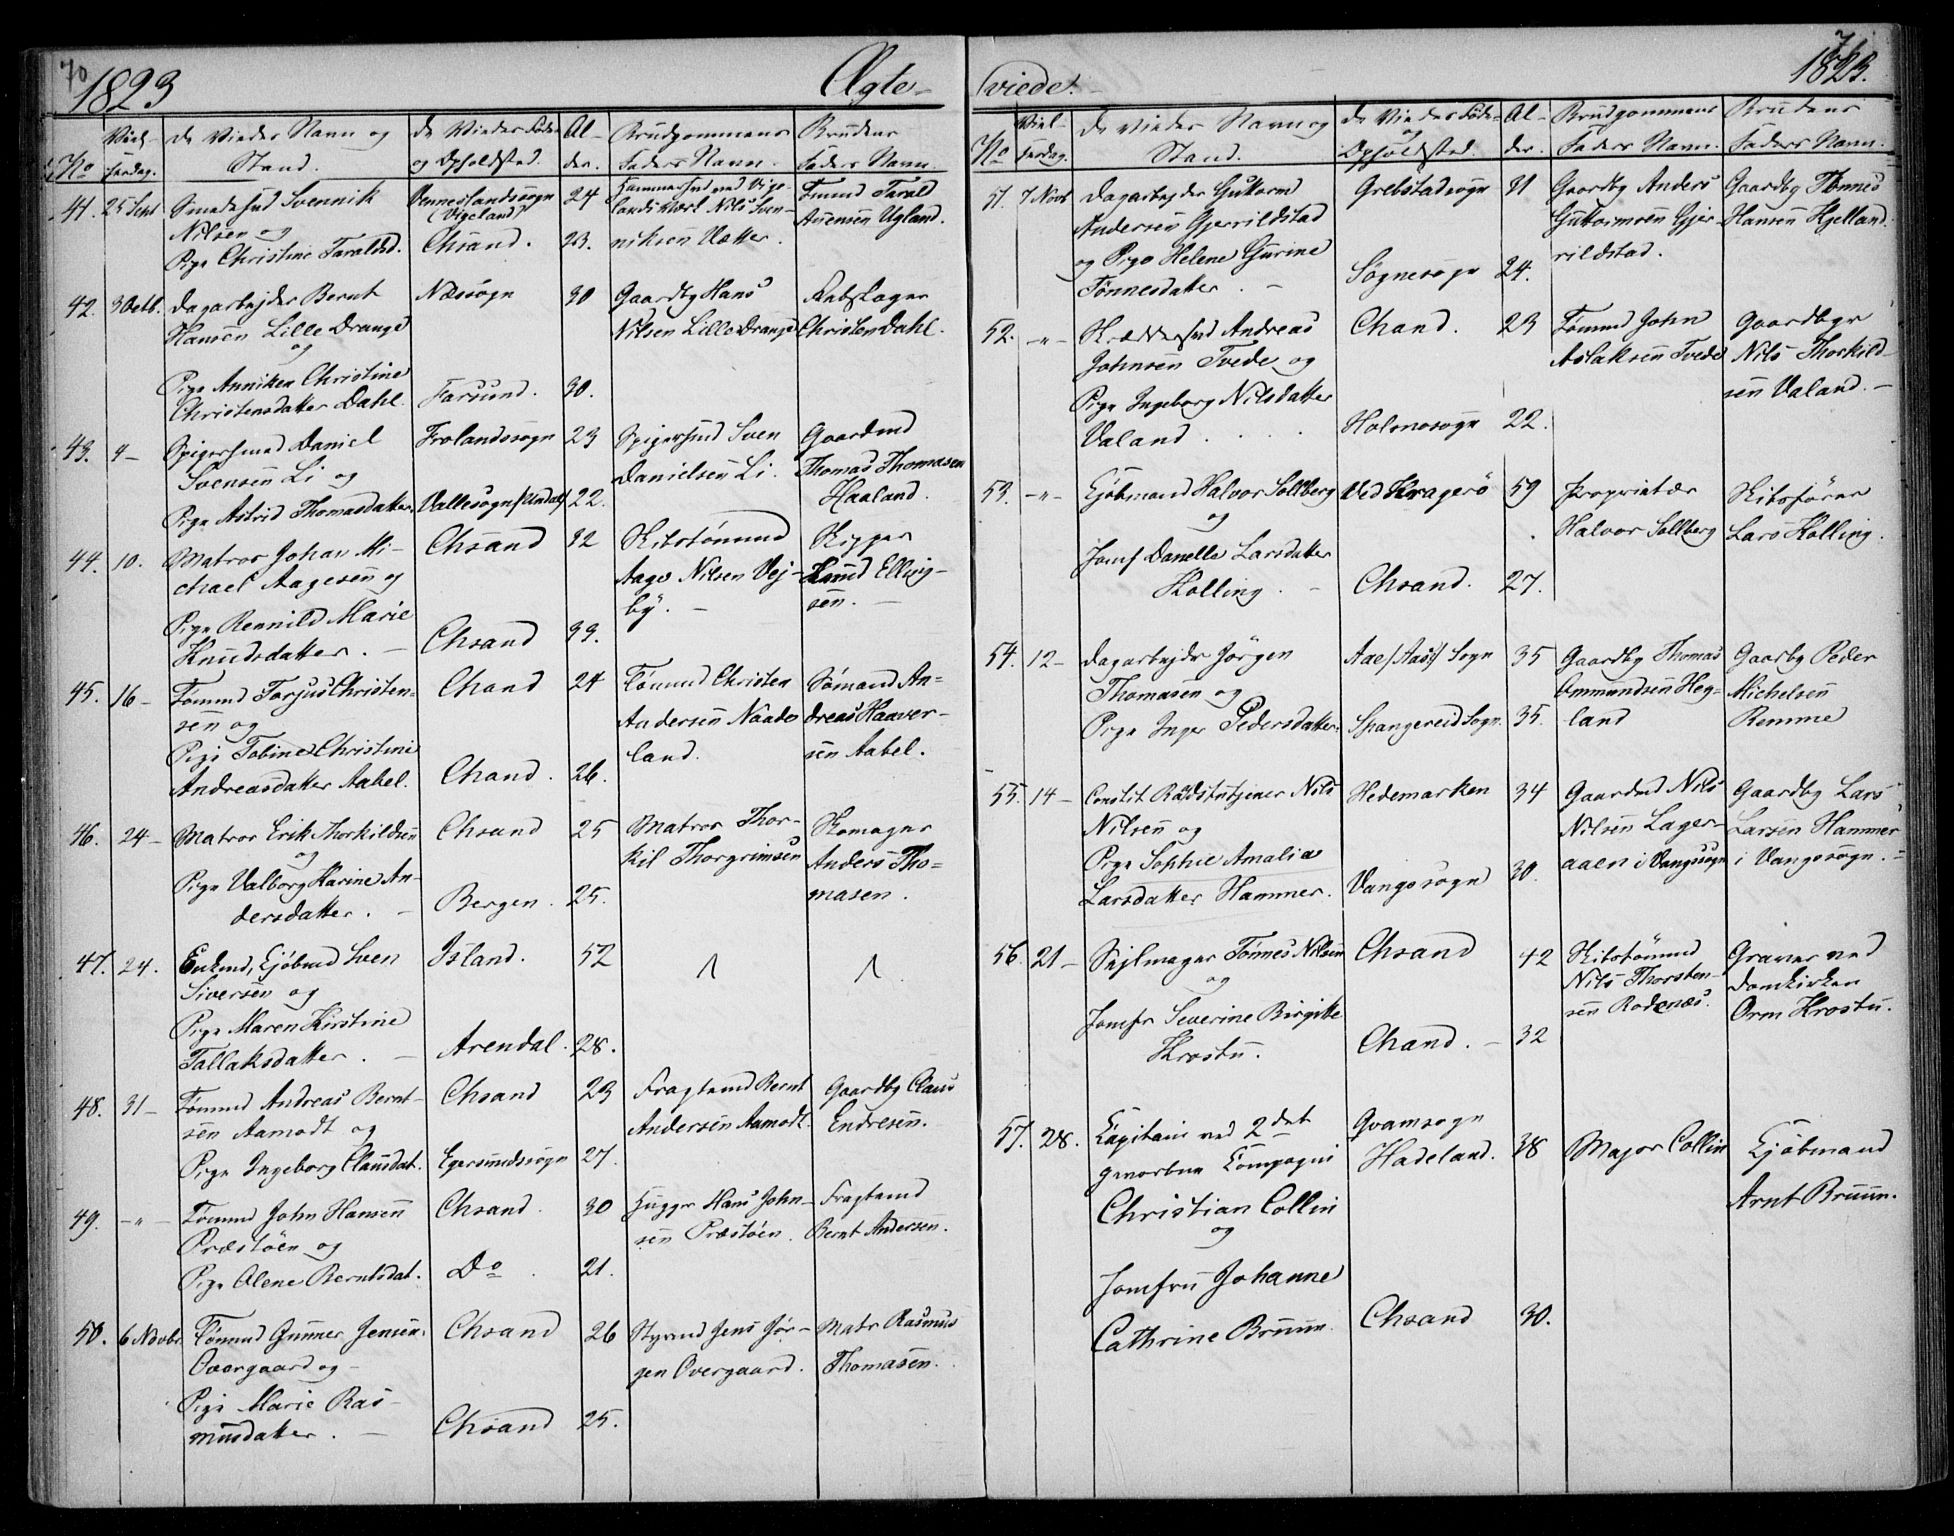 70
1823
Ægte-
viede.
71
1823.
No
Viel-
sesdag.
De Vieders Navn og
Stand.
De Vieders Føde-
og Opholdsted.
Al-
der.
Brudgommens
Faders Navn.
Brudens
Faders Navn.
41. 25 Sept
Smedesvd Svennik
Nilsen og
Pige Christine Taralsd.
Venneslandssogn
(Vigeland)
Chsand.
24
23.
Hammersmd ved Vige-
lands Værk Nils Sven-
niksen Vætter.
Tømmd Tarald
Ugland.
42. 3 Octb.
Dagarbejder Bernt
Hansen Lille Drange
og
Pige Anniken Christine
Christensdatter Dahl.
Næssogn
Farsund.
30
30.
Gaardbg Hans
Nilsen Lille Drange
Christen Dahl.
43. 9 -
Spigersmed Daniel
Svensen Li og
Pige Astrid Thomasdatter
Frolandssogn
Vallesogn (Undal)
23
22.
Spigersmd Sven
Danielsen Li.
Gaardmd
Thomas Thomasen
Haaland.
44. 10.
Matros Johan Mi-
chael Aagesen og
Pige Rennild Marie
Knudsdatter. -
Chsand
Chsand
32
33.
Skibstømmd
Aage Nilsen Vej-
by. -
Skipper
Knud Elling-
sen. -
45. 16 -
Tømmd Torjus Christen-
sen og
Pige Tobine Christine
Andreasdatter Aabel.
Chsand
Chsand.
24
26.
Tømmd Christen
Andersen Naade-
land.
Sømand An-
dreas Haaver-
sen Aabel.
46. 24 -
Matros Erik Thorkildsen
og
Pige Valborg Karine An-
dersdatter. -
Chsand
Bergen.
25
25.
Matros Thor-
kil Thorgrimsen
Skomager
Anders Tho-
masen.
47. 24.
Enkemd, Kjøbmd Sven
Siversen og
Pige Maren Kirstine
Tallaksdatter. -
Island.
Arendal.
52
28.
48. 31 -
Tømmd Andreas Bernt-
sen Aamodt og
Pige Ingeborg Clausdat.
Chsand
Egersundssogn
23
27.
Fragtemd Bernt
Andersen Aamodt.
Gaardbg Claus
Endresen.
49. - " -
Tømmd John Hansen
Præstøen og
Pige Olene Berntsdat.
Chsand.
Do.
30
21.
Hugger Hans John-
sen Præstøen.
Fragtemd
Bernt Andersen.
50. 6 Novbr
Tømmd Gunner Jensen
Overgaard og -
Pige Marie Ras-
musdatter. -
Chsand
Chsand
26
25.
Styrmd Jens Jør-
gen Overgaard.
Matr Rasmus
Thomasen.
No
Viel-
sesdag.
De vieders Navn og
Stand.
De Vieders Føde-
og
Opholdsted.
Al-
der.
Brudgommens
Faders Navn.
Brudens
Faders Navn.
51. 7 Novb
Dagarbejder Guttorm
Andersen Gjerrildstad
og Pige Helene Gurine
Tønnesdatter. -
Grebstadsogn
Søgnesogn
31
24.
Gaardbg Anders
Guttormsen Gjer-
rildstad.
Gaardbg Tønnes
Hansen Hjelland.
52. - " -
Skræddersvd Andreas
Johnsen Tvede og
Pige Ingeborg Nilsdatter
Valand . . . .
Chsand.
Holmesogn
23
22.
Tømmd John
Aslaksen Tvede
Gaardbgr
Nils Thorkild-
sen Valand. -
53. - " -
Kjøbmand Halvor Sollberg
og
Jomf Danelle Larsdatter
Kolling. -
Ved Kragerø
Chsand.
59
27.
Proprietær
Halvor Sollberg
Skibsfører
Lars Kolling.
54. 12 -
Dagarbejdr Jørgen
Thomasen og
Pige Inger Pedersdatter.
Aae (Aas) Sogn
Spangereid Sogn
35
35.
Gaardbg Thomas
Ommundsen Heg-
land
Gaarbg Peder
Michelsen
Remme
55. 14 -
Constit Raadstutjener Nils
Nilsen og
Pige Sophie Amalia
Larsdatter Hammer.
Hedemarken
Vangssogn
34
30.
Gaardmd Nils
Nilsen Lager-
aaen i Vangssogn
Gaardbg Lars
Larsen Hammer
i Vangssogn. -
56. 21 -
Sejlmager Tønnes Nilsen
og
Jomfr Severine Birgitte
Krostu.
Chsand
Chsand. -
42
32
Skibstømmd
Nils Thorsten-
sen Rodenæs.
Graver ved
Domkirken
Orm Krostu.
57. 28.
Capitain ved 2det
gevorbne Compagni
Christian Collin
og
Jomfru Johanne
Cathrine Bruun.
Gransogn
Hadeland.
Chsand
38
30.
Major Collin
Kjøbmand
Arnt Bruun.